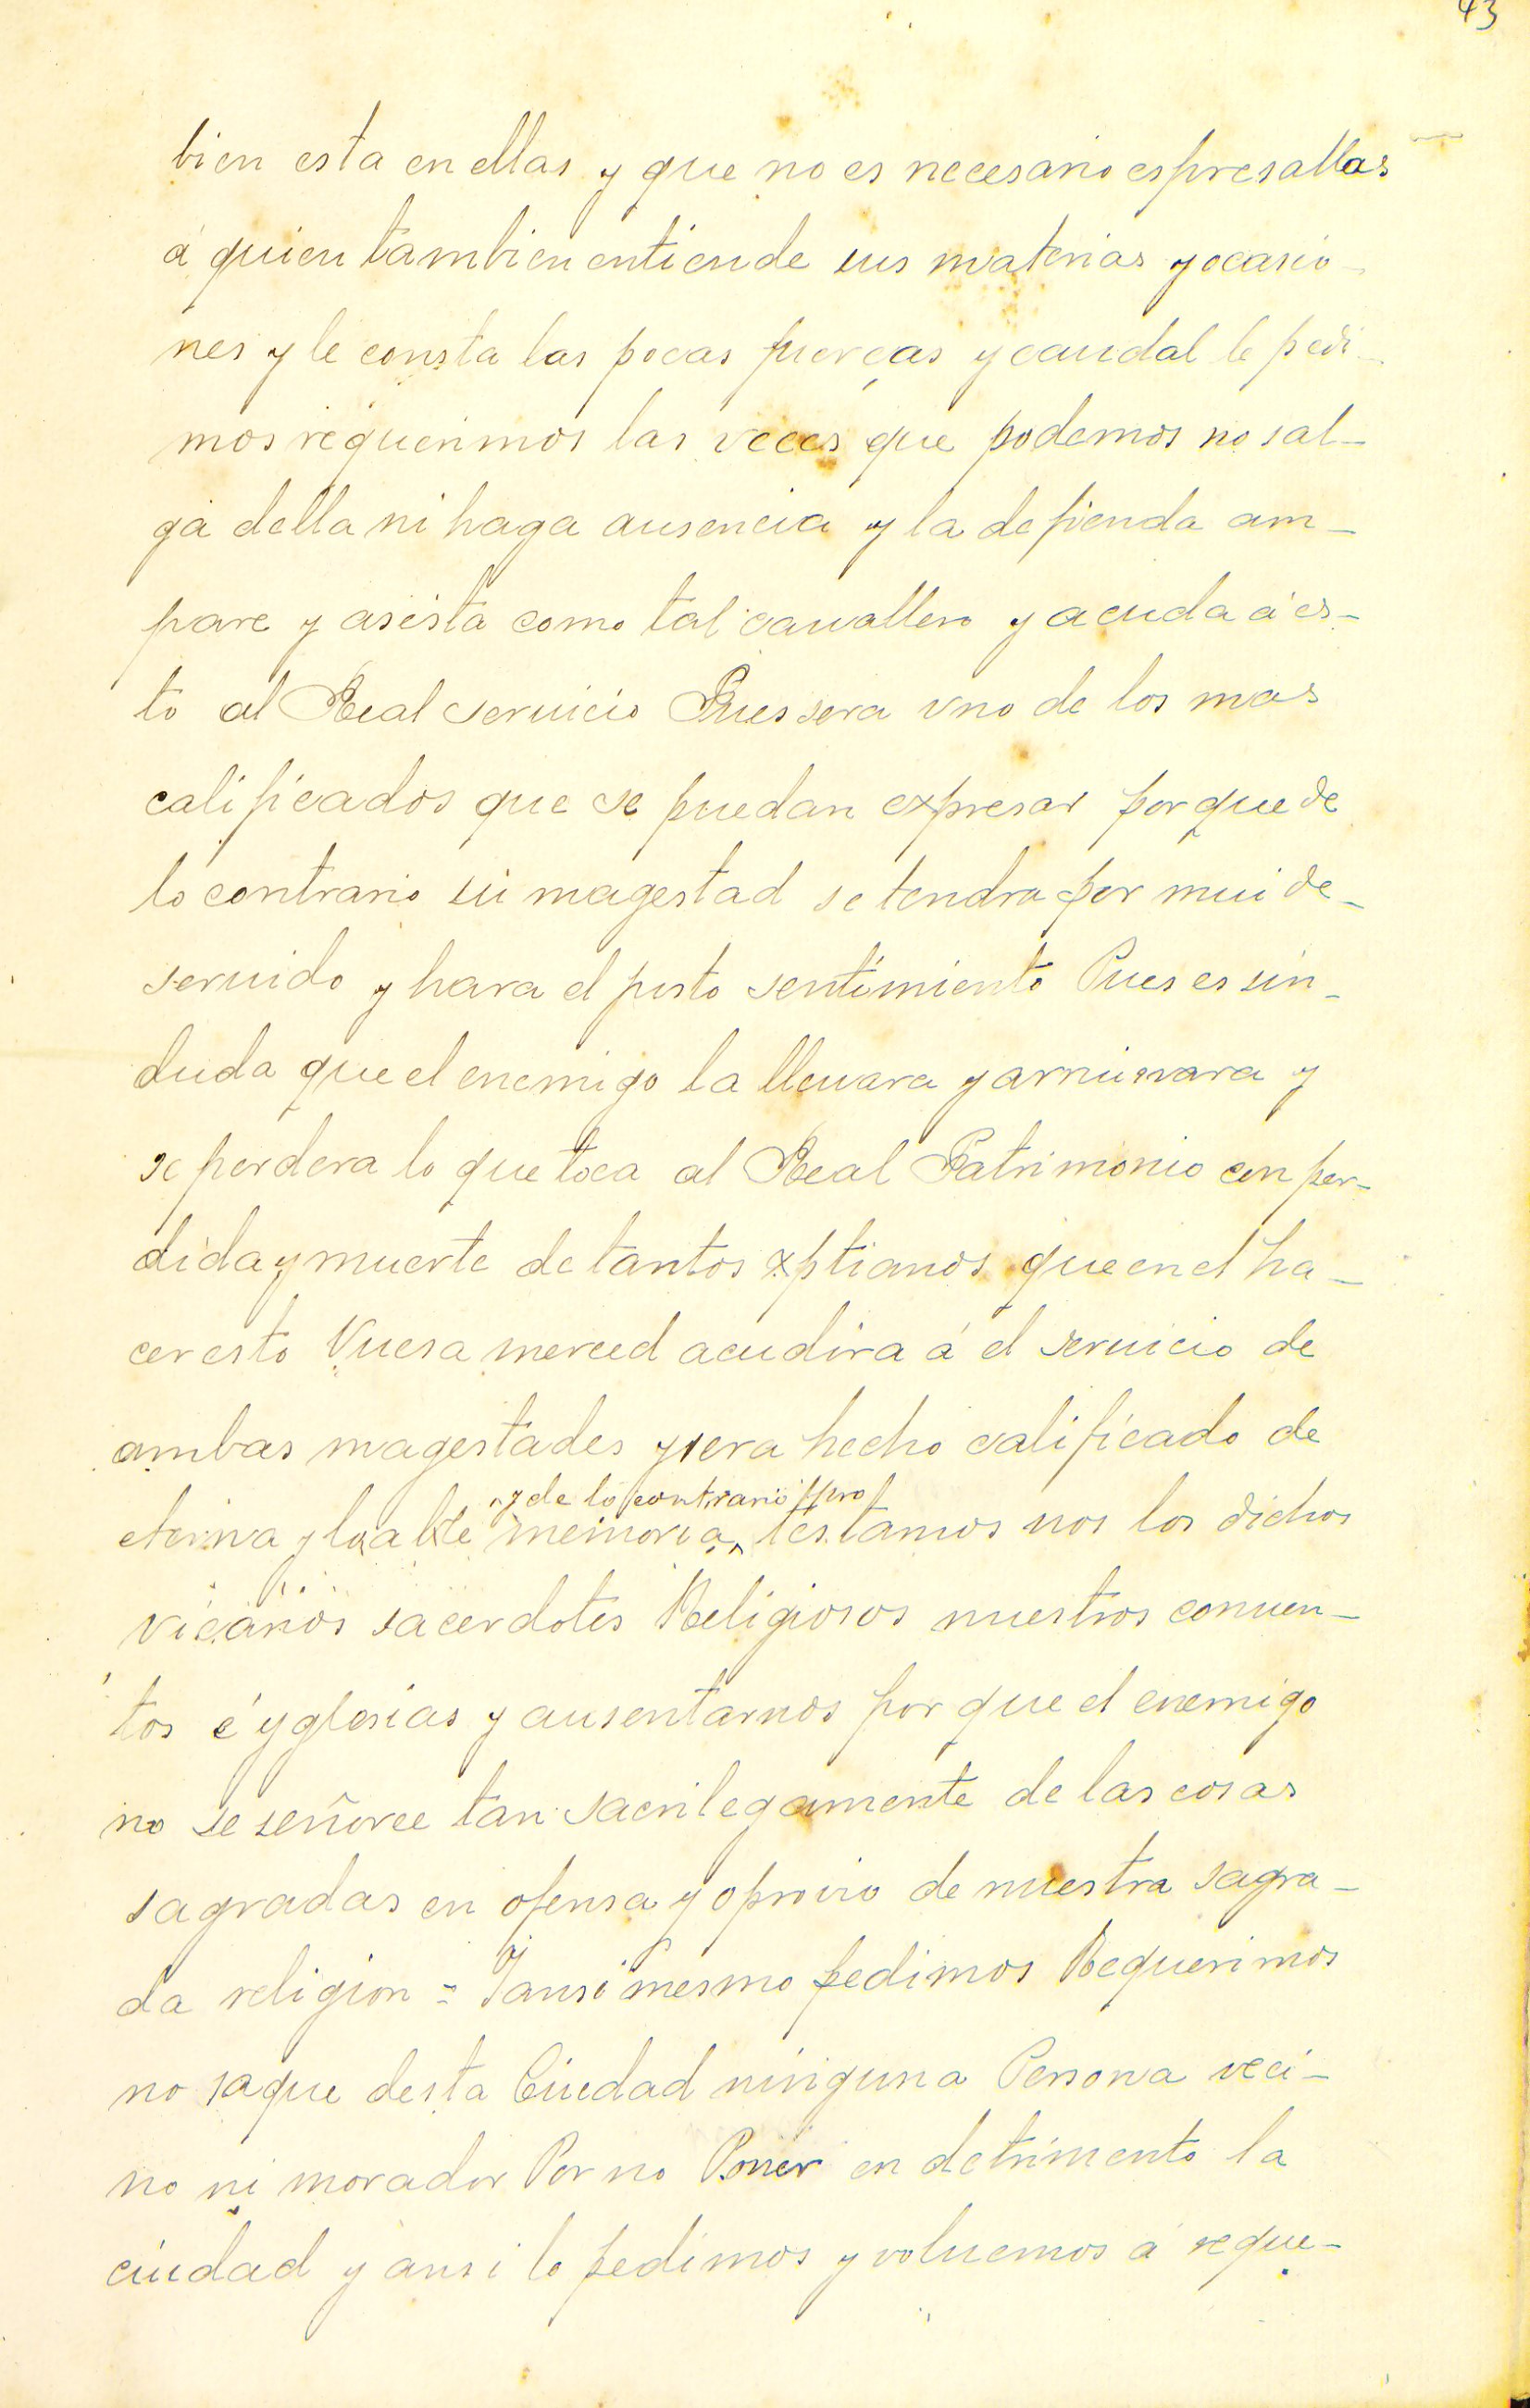 43
bien esta en ellas y que no es necesario espresallas
á quien tambien entiende sus materias y ocasio-
nes y le consta las pocas fuerças y caudal le pedi-
mos requerimos las veces que podemos no sal-
ga della ni haga ausencia y la defienda am-
pare y asista como tal cauallero y acuda á es-
to al Real seruicio Pues sera vno de los mas
calificados que se puedan expresar porque de
lo contrario su magestad se tendra por mui de-
seruido y hara el justo sentimiento Pues es sin
duda que el enemigo la lleuara y arruinara y
se perdera lo que toca al Real Patrimonio con per-
dida y muerte de tantos xptianos que en el ha-
cer esto Vuesa merced acudira á el seruicio de
ambas magestades y sera hecho calificado de
y de lo contrario pro
eterna y loable memoria testamos nos los dichos
vicarios sacerdotes Religiosos nuestros conuen-
tos é yglesias y ausentarnos por que el enemigo
no se señoree tan sacrilegamente de las cosas
sagradas en ofensa y oprovio de nuestra sagra-
da religion = Y ansi mesmo pedimos Requerimos
no saque desta Ciudad ninguna Persona veci-
no ni morador Por no Poner en detrimento la
ciudad y ansi lo pedimos y voluemos á reque-